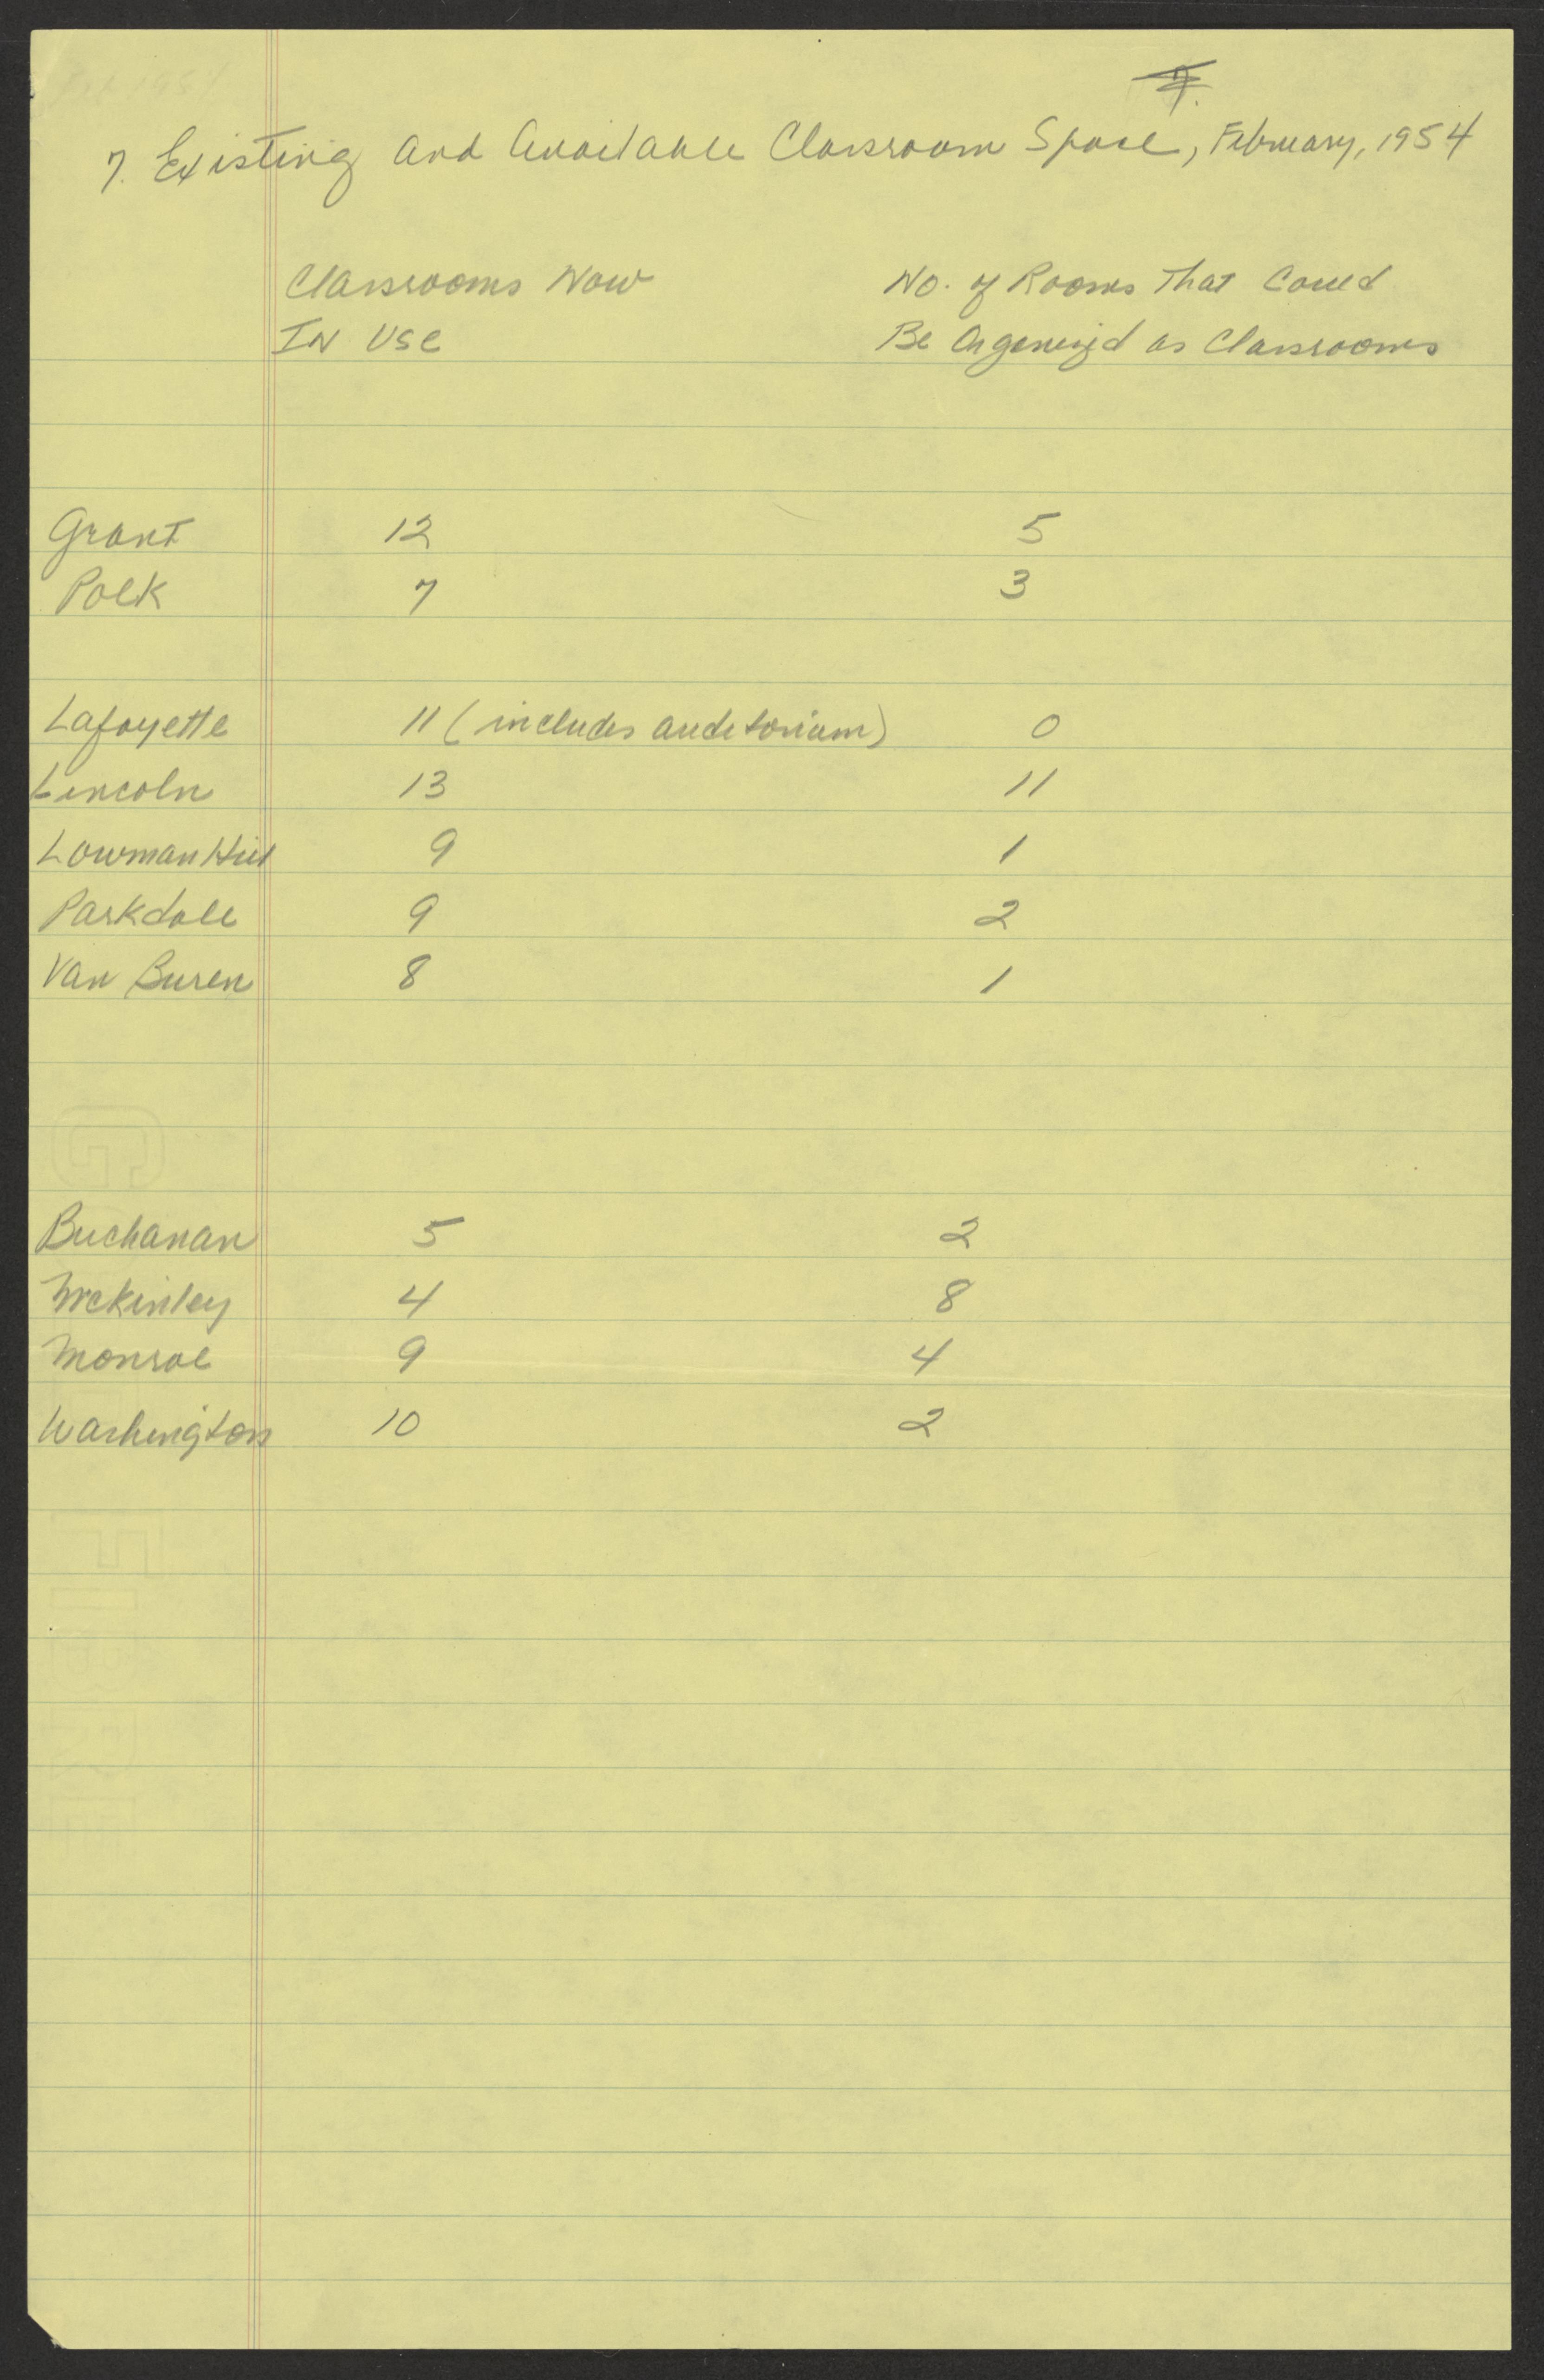 7.
7. Existing and Available Classroom Space, February, 1954
Classrooms Now No. of Rooms That Could
IN Use Be Organized as Classrooms
Grant 12 5
Polk 7 3
Lafayette 11 (includes auditorium) 0
Lincoln 13 11
Lowman Hill 9 1
Parkdale 9 2
Van Buren 8 1
Buchanan 5 2
McKinley 4 8
Monroe 9 4
Washington 10 2